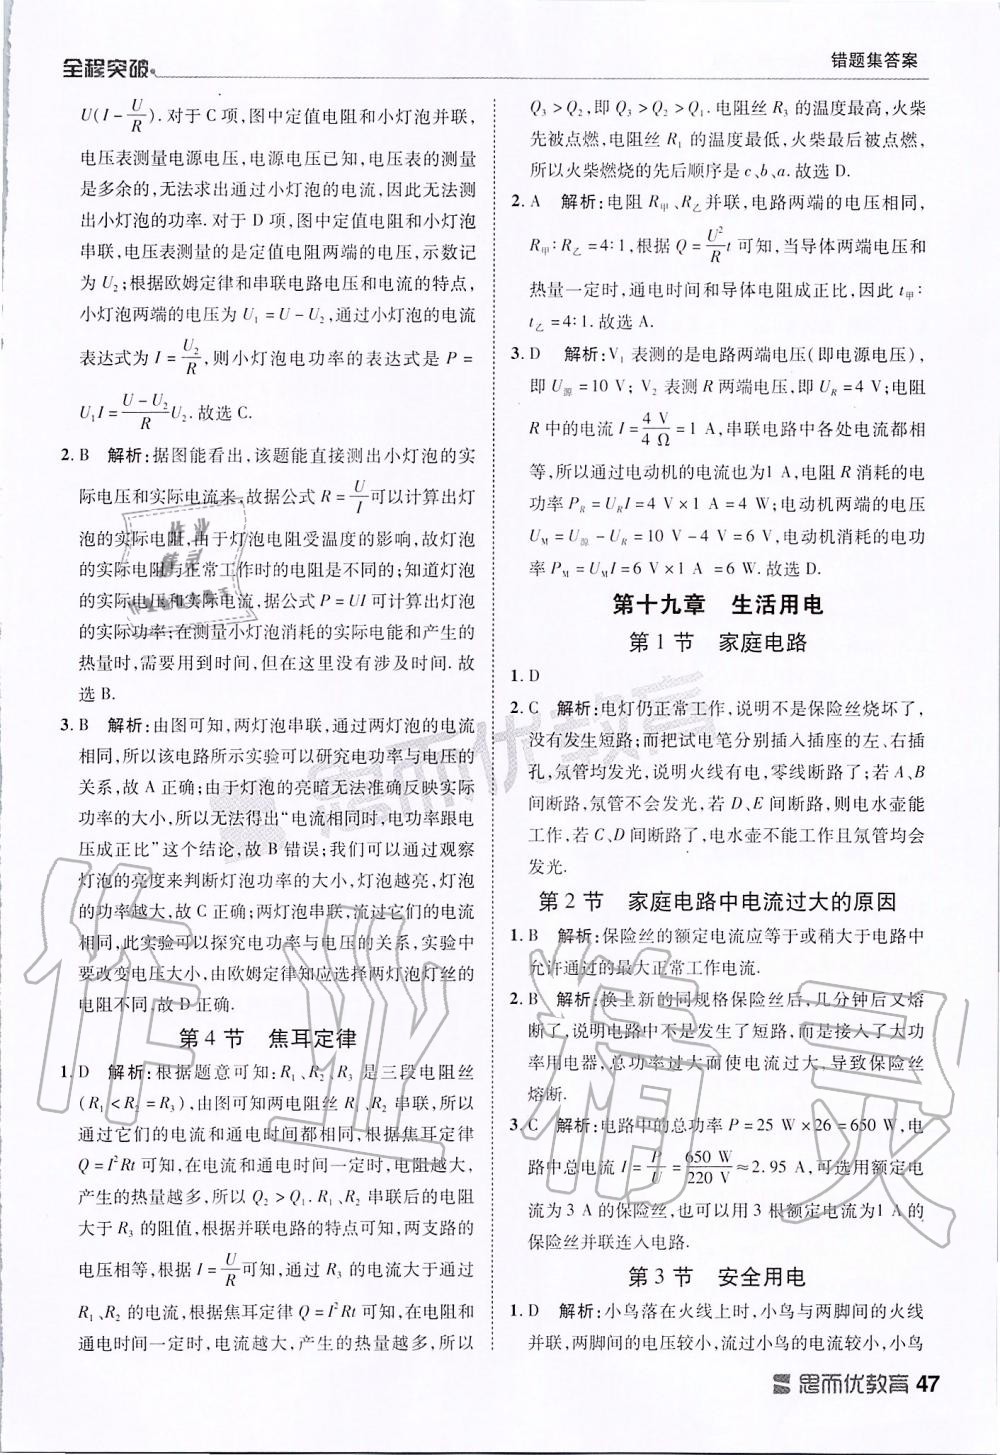 全程突破
错题集答案
U(I-U/R).对于C项,图中定值电阻和小灯泡并联,
电压表测量电源电压,电源电压已知,电压表的测量
是多余的,无法求出通过小灯泡的电流,因此无法测
出小灯泡的功率.对于D项,图中定值电阻和小灯泡
串联,电压表测量的是定值电阻两端的电压,示数记
为U₂;根据欧姆定律和串联电路电压和电流的特点,
小灯泡两端的电压为U₁=U-U₂,通过小灯泡的电流
表达式为I=U₂/R,则小灯泡电功率的表达式是P=
U₁I=(U-U₂)/R U₂.故选C.
2.B 解析:据图能看出,该题能直接测出小灯泡的实
际电压和实际电流来,故据公式R=U/I可以计算出灯
泡的实际电阻,由于灯泡电阻受温度的影响,故灯泡
的实际电阻与正常工作时的电阻是不同的;知道灯泡
的实际电压和实际电流,据公式P=UI可计算出灯泡
的实际功率;在测量小灯泡消耗的实际电能和产生的
热量时,需要用到时间,但在这里没有涉及时间.故
选B.
3.B 解析:由图可知,两灯泡串联,通过两灯泡的电流
相同,所以该电路所示实验可以研究电功率与电压的
关系,故A正确;由于灯泡的亮暗无法准确反映实际
功率的大小,所以无法得出“电流相同时,电功率跟电
压成正比”这个结论,故B错误;我们可以通过观察
灯泡的亮度来判断灯泡功率的大小,灯泡越亮,灯泡
的功率越大,故C正确;两灯泡串联,流过它们的电流
相同,此实验可以探究电功率与电压的关系,实验中
要改变电压大小,由欧姆定律知应选择两灯泡灯丝的
电阻不同,故D正确.
第4节 焦耳定律
1.D 解析:根据题意可知:R₁、R₂、R₃是三段电阻丝
(R₁<R₂=R₃),由图可知两电阻丝R₁、R₂串联,所以
通过它们的电流和通电时间都相同,根据焦耳定律
Q=I²Rt可知,在电流和通电时间一定时,电阻越大,
产生的热量越多,所以Q₂>Q₁.R₁、R₂串联后的电阻
大于R₃的阻值,根据并联电路的特点可知,两支路的
电压相等,根据I=U/R可知,通过R₃的电流大于通过
R₁、R₂的电流,根据焦耳定律Q=I²Rt可知,在电阻和
通电时间一定时,电流越大,产生的热量越多,所以
Q₃>Q₂,即Q₃>Q₂>Q₁.电阻丝R₃的温度最高,火柴
先被点燃,电阻丝R₁的温度最低,火柴最后被点燃,
所以火柴燃烧的先后顺序是c、b、a.故选D.
2.A 解析:电阻R甲、R乙并联,电路两端的电压相同,
R甲:R乙=4:1,根据Q=U²/R t可知,当导体两端电压和
热量一定时,通电时间和导体电阻成正比,因此t甲:
t乙=4:1.故选A.
3.D 解析:V₁表测的是电路两端电压(即电源电压),
即U源=10 V;V₂表测R两端电压,即U_R=4 V;电阻
R中的电流I=4 V/4 Ω=1 A,串联电路中各处电流都相
等,所以通过电动机的电流也为1 A,电阻R消耗的电
功率P_R=U_RI=4 V×1 A=4 W;电动机两端的电压
U_M=U源-U_R=10 V-4 V=6 V,电动机消耗的电功
率P_M=U_MI=6 V×1 A=6 W.故选D.
第十九章 生活用电
第1节 家庭电路
1.D
2.C 解析:电灯仍正常工作,说明不是保险丝烧坏了,
没有发生短路;而把试电笔分别插入插座的左、右插
孔,氖管均发光,说明火线有电,零线断路了;若A、B
间断路,氖管不会发光;若D、E间断路,则电水壶能
工作,若C、D间断路了,电水壶不能工作且氖管均会
发光.
第2节 家庭电路中电流过大的原因
1.B 解析:保险丝的额定电流应等于或稍大于电路中
允许通过的最大正常工作电流.
2.B 解析:换上新的同规格保险丝后,几分钟后又熔
断了,说明电路中不是发生了短路,而是接入了大功
率用电器,总功率过大而使电流过大,导致保险丝
熔断.
3.C 解析:电路中的总功率P=25 W×26=650 W,电
路中总电流I=P/U=650 W/220 V≈2.95 A,可选用额定电
流为3 A的保险丝,也可以用3根额定电流为1 A的
保险丝并联连入电路.
第3节 安全用电
1.D 解析:小鸟落在火线上时,小鸟与两脚间的火线
并联,两脚间的电压较小,流过小鸟的电流较小,小鸟
思而优教育 47
思而优教育
作业精灵